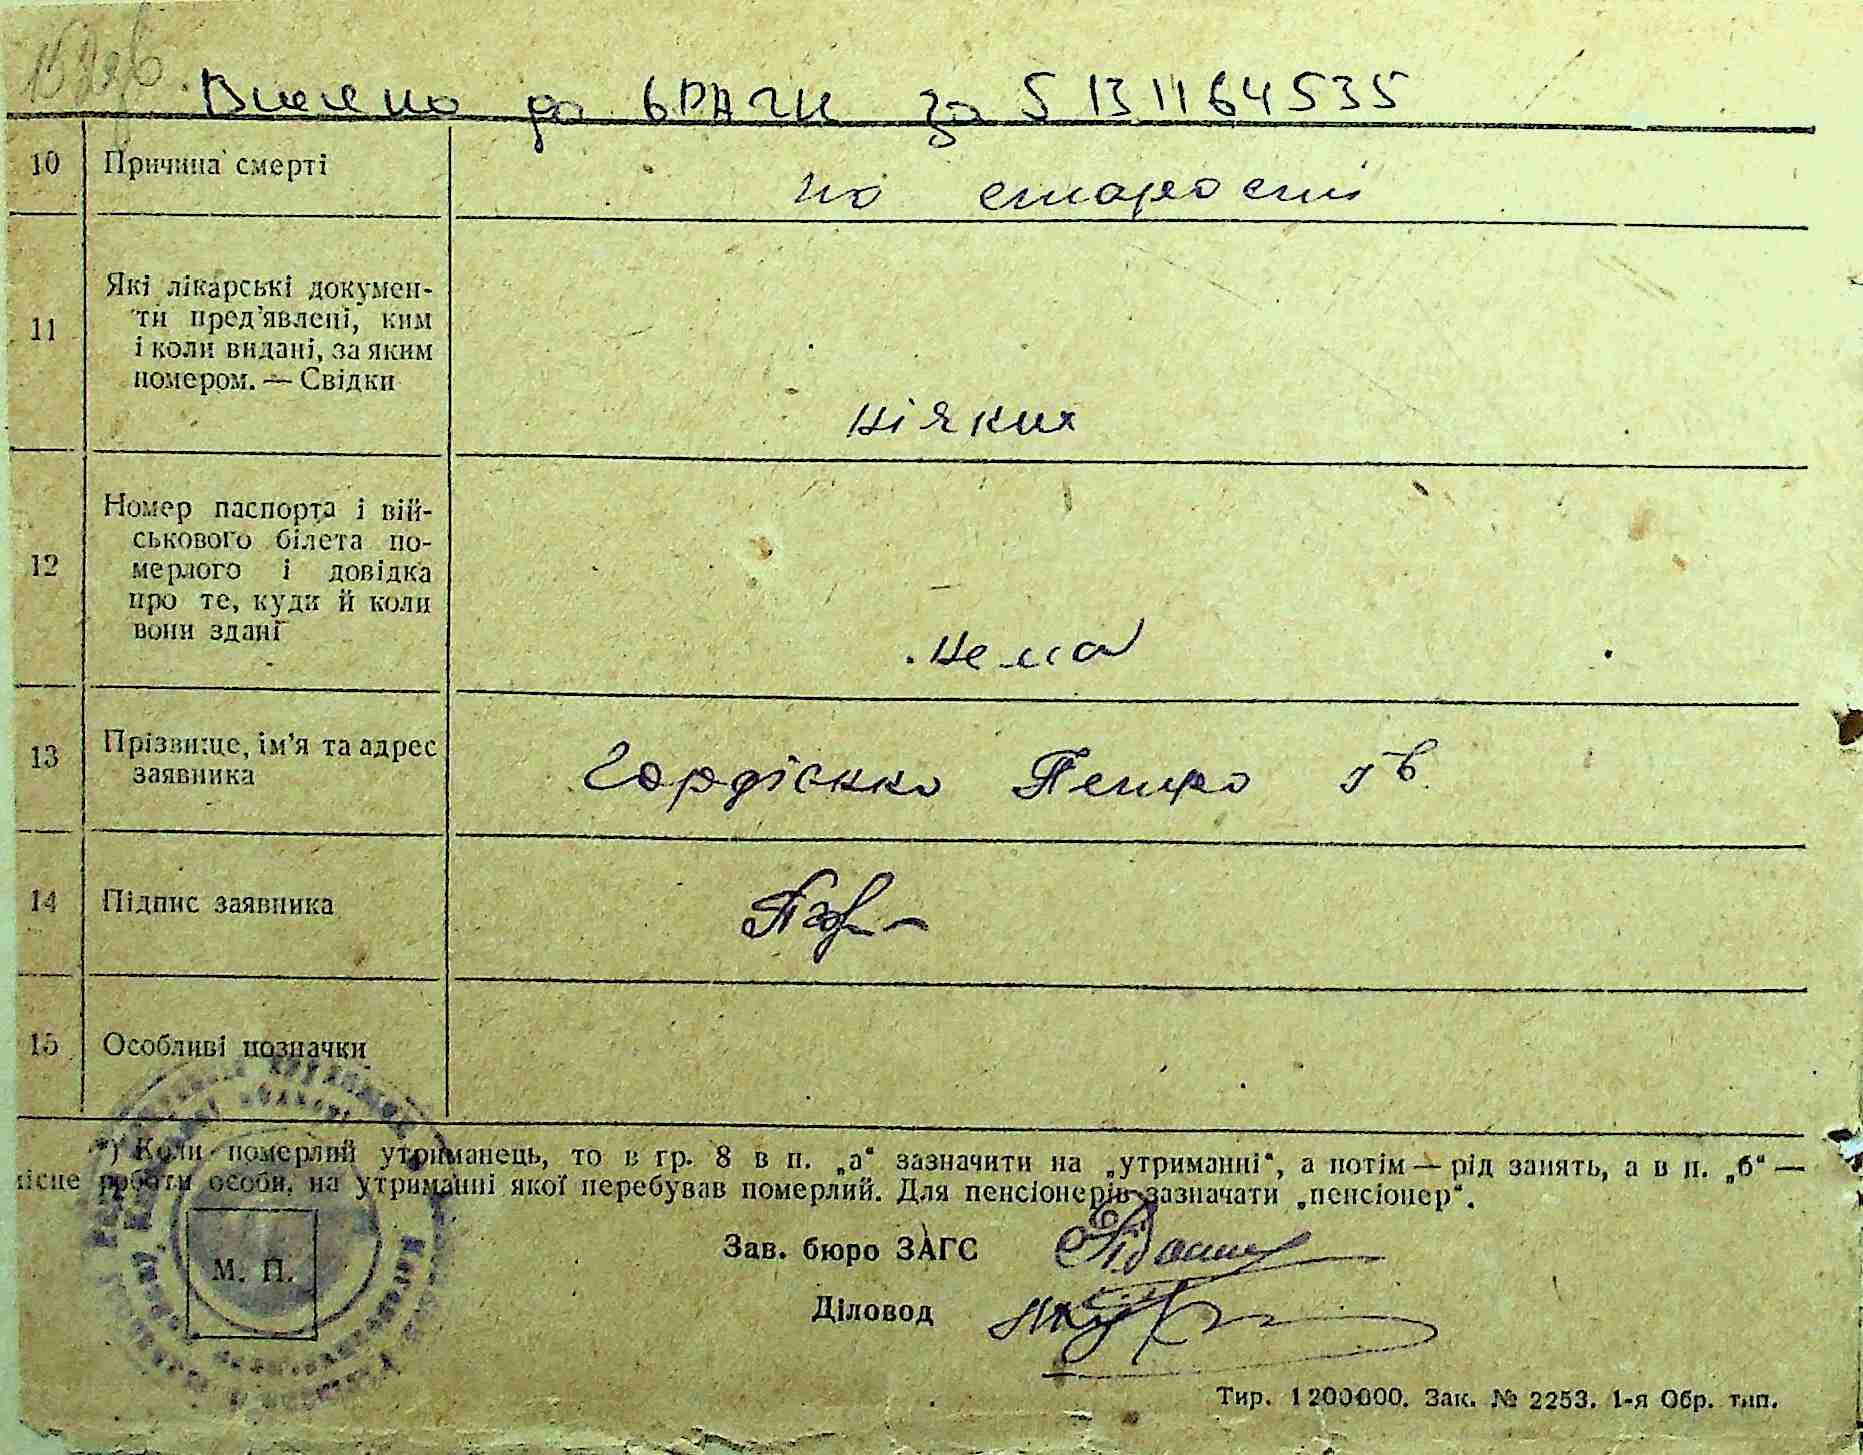 Внесено до ЄРАГИ за 5 13 11 64 535
10 Причина смерті по старості
11 Які лікарські докумен-
ти пред’явлені, ким
і коли видані, за яким
номером. — Свідки
ніяких
12 Номер паспорта і вій-
ськового білета по-
мерлого і довідка
про те, куди й коли
вони здані
нема
13 Прізвище, ім’я та адрес
заявника
Гордієнко Петро
14 Підпис заявника
15 Особливі позначки
*) Коли померлий утриманець, то в гр. 8 в п. „а“ зазначити на „утриманні“, а потім — рід занять, а в п. „б“ —
місце роботи особи, на утриманні якої перебував померлий. Для пенсіонерів зазначати „пенсіонер“.
Зав. бюро ЗАГС
М. П.
Діловод
Тир. 1200000. Зак. № 2253. 1-я Обр. тип.